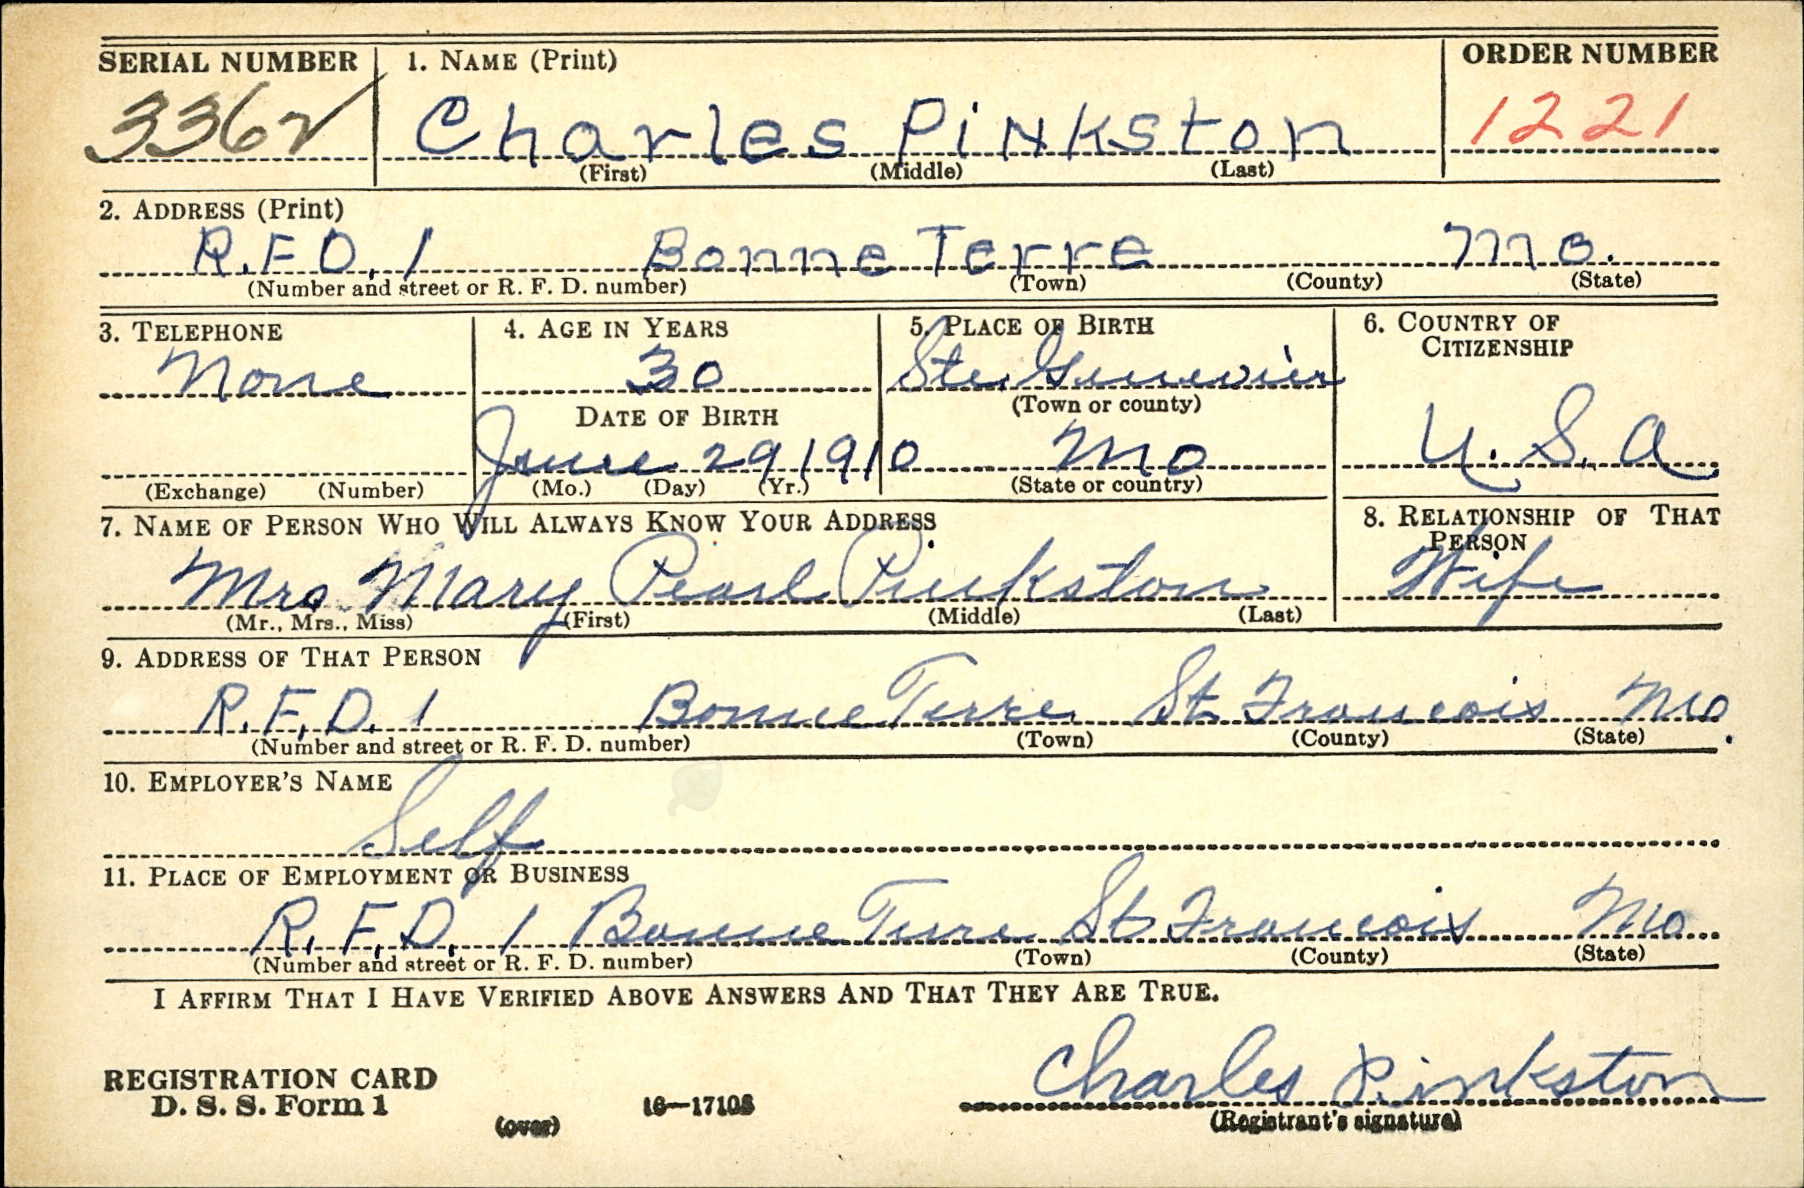 SERIAL NUMBER 1. NAME (Print) ORDER NUMBER
3362 Charles Pinkston 1221
(First) (Middle) (Last)
2. ADDRESS (Print)
R.F.D. 1 Bonne Terre Mo.
(Number and street or R. F. D. number) (Town) (County) (State)
3. TELEPHONE 4. AGE IN YEARS 5. PLACE OF BIRTH 6. COUNTRY OF CITIZENSHIP
None 30 Ste. Genevier
(Town or county)
DATE OF BIRTH
June 29 1910 Mo U. S. A
(Exchange) (Number) (Mo.) (Day) (Yr.) (State or country)
7. NAME OF PERSON WHO WILL ALWAYS KNOW YOUR ADDRESS 8. RELATIONSHIP OF THAT PERSON
Mrs Mary Pearl Pinkston Wife
(Mr., Mrs., Miss) (First) (Middle) (Last)
9. ADDRESS OF THAT PERSON
R.F.D. 1 Bonne Terre St Francois Mo.
(Number and street or R. F. D. number) (Town) (County) (State)
10. EMPLOYER'S NAME
Self
11. PLACE OF EMPLOYMENT OR BUSINESS
R. F. D. 1 Bonne Terre St Francois Mo
(Number and street or R. F. D. number) (Town) (County) (State)
I AFFIRM THAT I HAVE VERIFIED ABOVE ANSWERS AND THAT THEY ARE TRUE.
Charles Pinkston
REGISTRATION CARD
D. S. S. Form 1 16—17105 (Registrant's signature)
(over)